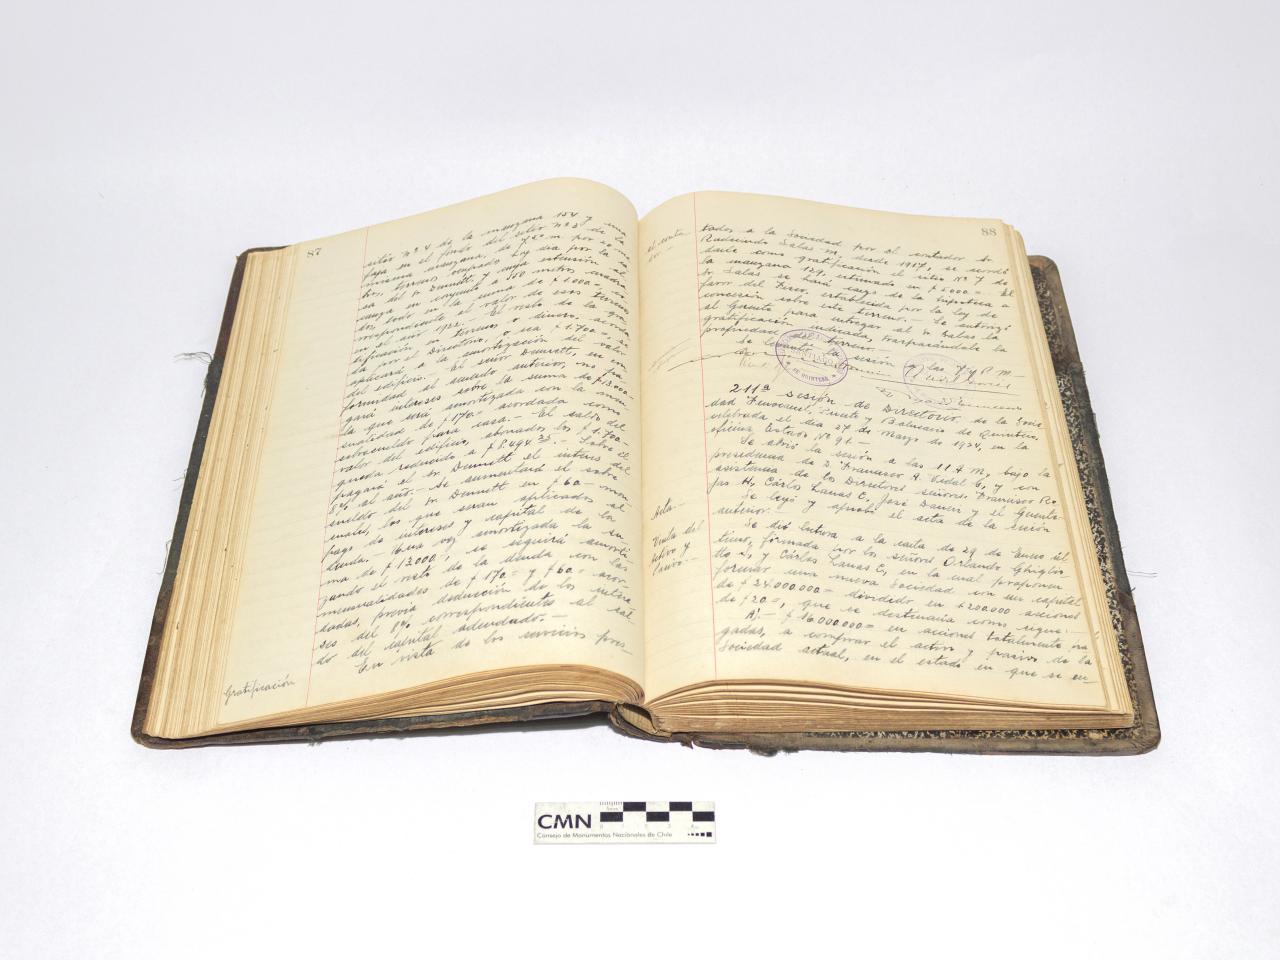 87
sitio Nº 4 de la manzana 154 y una
faja en el fondo del sitio Nº 3 de la
misma manzana, de por 20 me-
tros, terreno ocupado hoy día por la ca-
sa del Sr Dunnett, y cuya extensión al-
canza en conjunto a 550 metros cuadra-
dos, todo en la suma de $ 5.000=, co-
rrespondiente al valor de esos terrenos
en el año 1922. - El resto de la gra-
tificación en terrenos o dinero, acorda-
da por el Directorio, o sea $ 1.700=, se
aplicará a la amortización del valor
del edificio. - El señor Dunnett, en con-
formidad al acuerdo anterior, no pa-
gará intereses sobre la suma de $ 13.000-
la que será amortizada con la men-
sualidad de $ 170= acordada como
sobresueldo para casa. - El saldo del
valor del edificio, abonados los $ 1.700-
queda reducido a $ 8.494 - Sobre él
pagará el Sr Dunnett el interes del
8% al año. - Se aumentará el sobre
sueldo del Sr Dunnett en $ 60= men-
suales, los que serán aplicados al
pago de intereses y capital de la
deuda. - Una vez amortizada la su-
ma de $ 13.000, se seguirá amorti-
zando el resto de la deuda con las
mensualidades de $ 170= y $ 60= acor-
dadas, previa deducción de los intere-
ses del 8% correspondientes al sal-
do del capital adeudado. -
Gratificación
En vista de los servicios pres-
88
al conta-
dor. -
tados a la Sociedad por el contador Sr
Radecindo Salas M, desde 1917, se acordó
darle como gratificación el sitio Nº 7 de
la manzana 129, estimado en $ 5.000= - El
Sr Salas se hará cargo de la hipoteca a
favor del Fisco, establecida por la ley de
concesión sobre este terreno. - Se autorizó
al Gerente para entregar al Sr Salas la
gratificación indicada, traspasándole la
propiedad del terreno. -
Se levantó la sesión a las P. M. -
211ª sesión de Directorio, de la Socie-
dad Ferrocarril, Puerto y Balneario de Quintero,
celebrada el día 27 de Mayo de 1924, en la
oficina Estado Nº 91. -
Se abrió la sesión a las 11 A M, bajo la
presidencia de D. Francisco A. Vidal G, y con
asistencia de los Directores señores Francisco Ro-
jas H, Cárlos Lanas C, José Daveri y el Gerente.
Acta. -
Se leyó y aprobó el acta de la sesión
anterior. -
Venta del
Activo y
Pasivo. -
Se dió lectura a la carta de 29 de Enero úl-
timo, firmada por los señores Orlando Ghiglio-
tto S, y Cárlos Lanas C, en la cual proponen
formar una nueva Sociedad con un capital
de $ 24.000.000= dividido en 1.200.000 acciones
de $ 20=, que se destinaría como sigue: -
A. - $ 16.000.000= en acciones totalmente pa-
gadas, a comprar el activo y pasivo de la
Sociedad actual, en el estado en que se en-
CMN
Consejo de Monumentos Nacionales de Chile